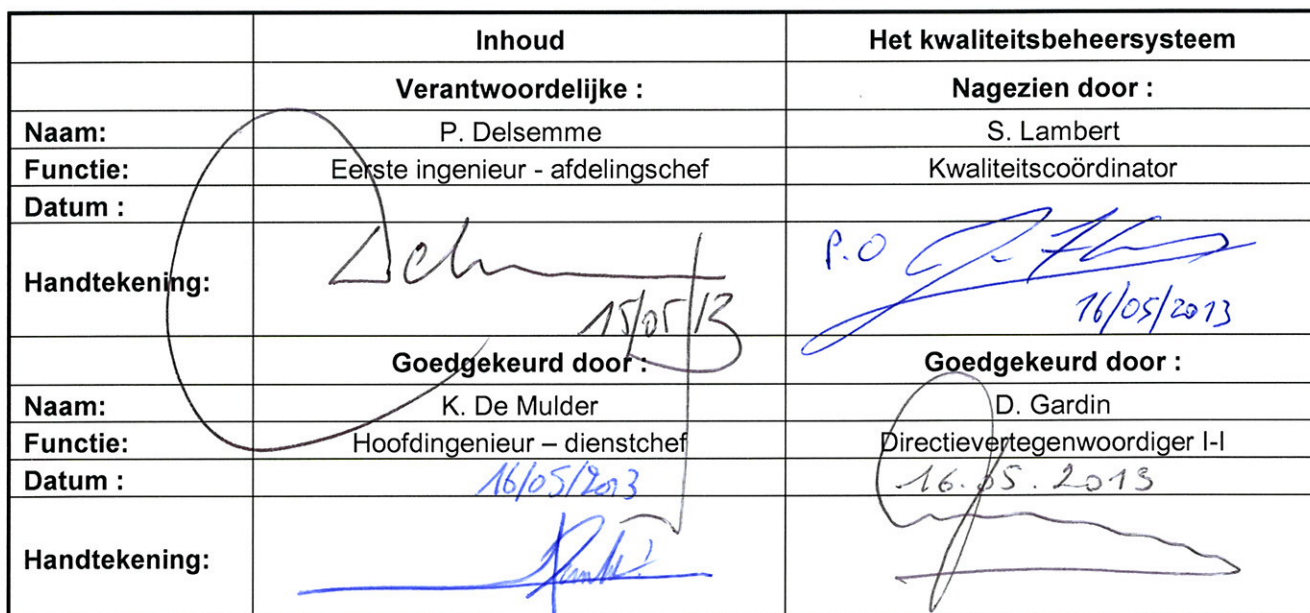 Inhoud Het kwaliteitsbeheersysteem
Verantwoordelijke : Nagezien door :
Naam: P. Delsemme S. Lambert
Functie: Eerste ingenieur - afdelingschef Kwaliteitscoördinator
Datum :
Handtekening: P.O
15/05/13 16/05/2013
Goedgekeurd door : Goedgekeurd door :
Naam: K. De Mulder D. Gardin
Functie: Hoofdingenieur – dienstchef Directievertegenwoordiger I-I
Datum : 16/05/2013 16.05.2013
Handtekening: